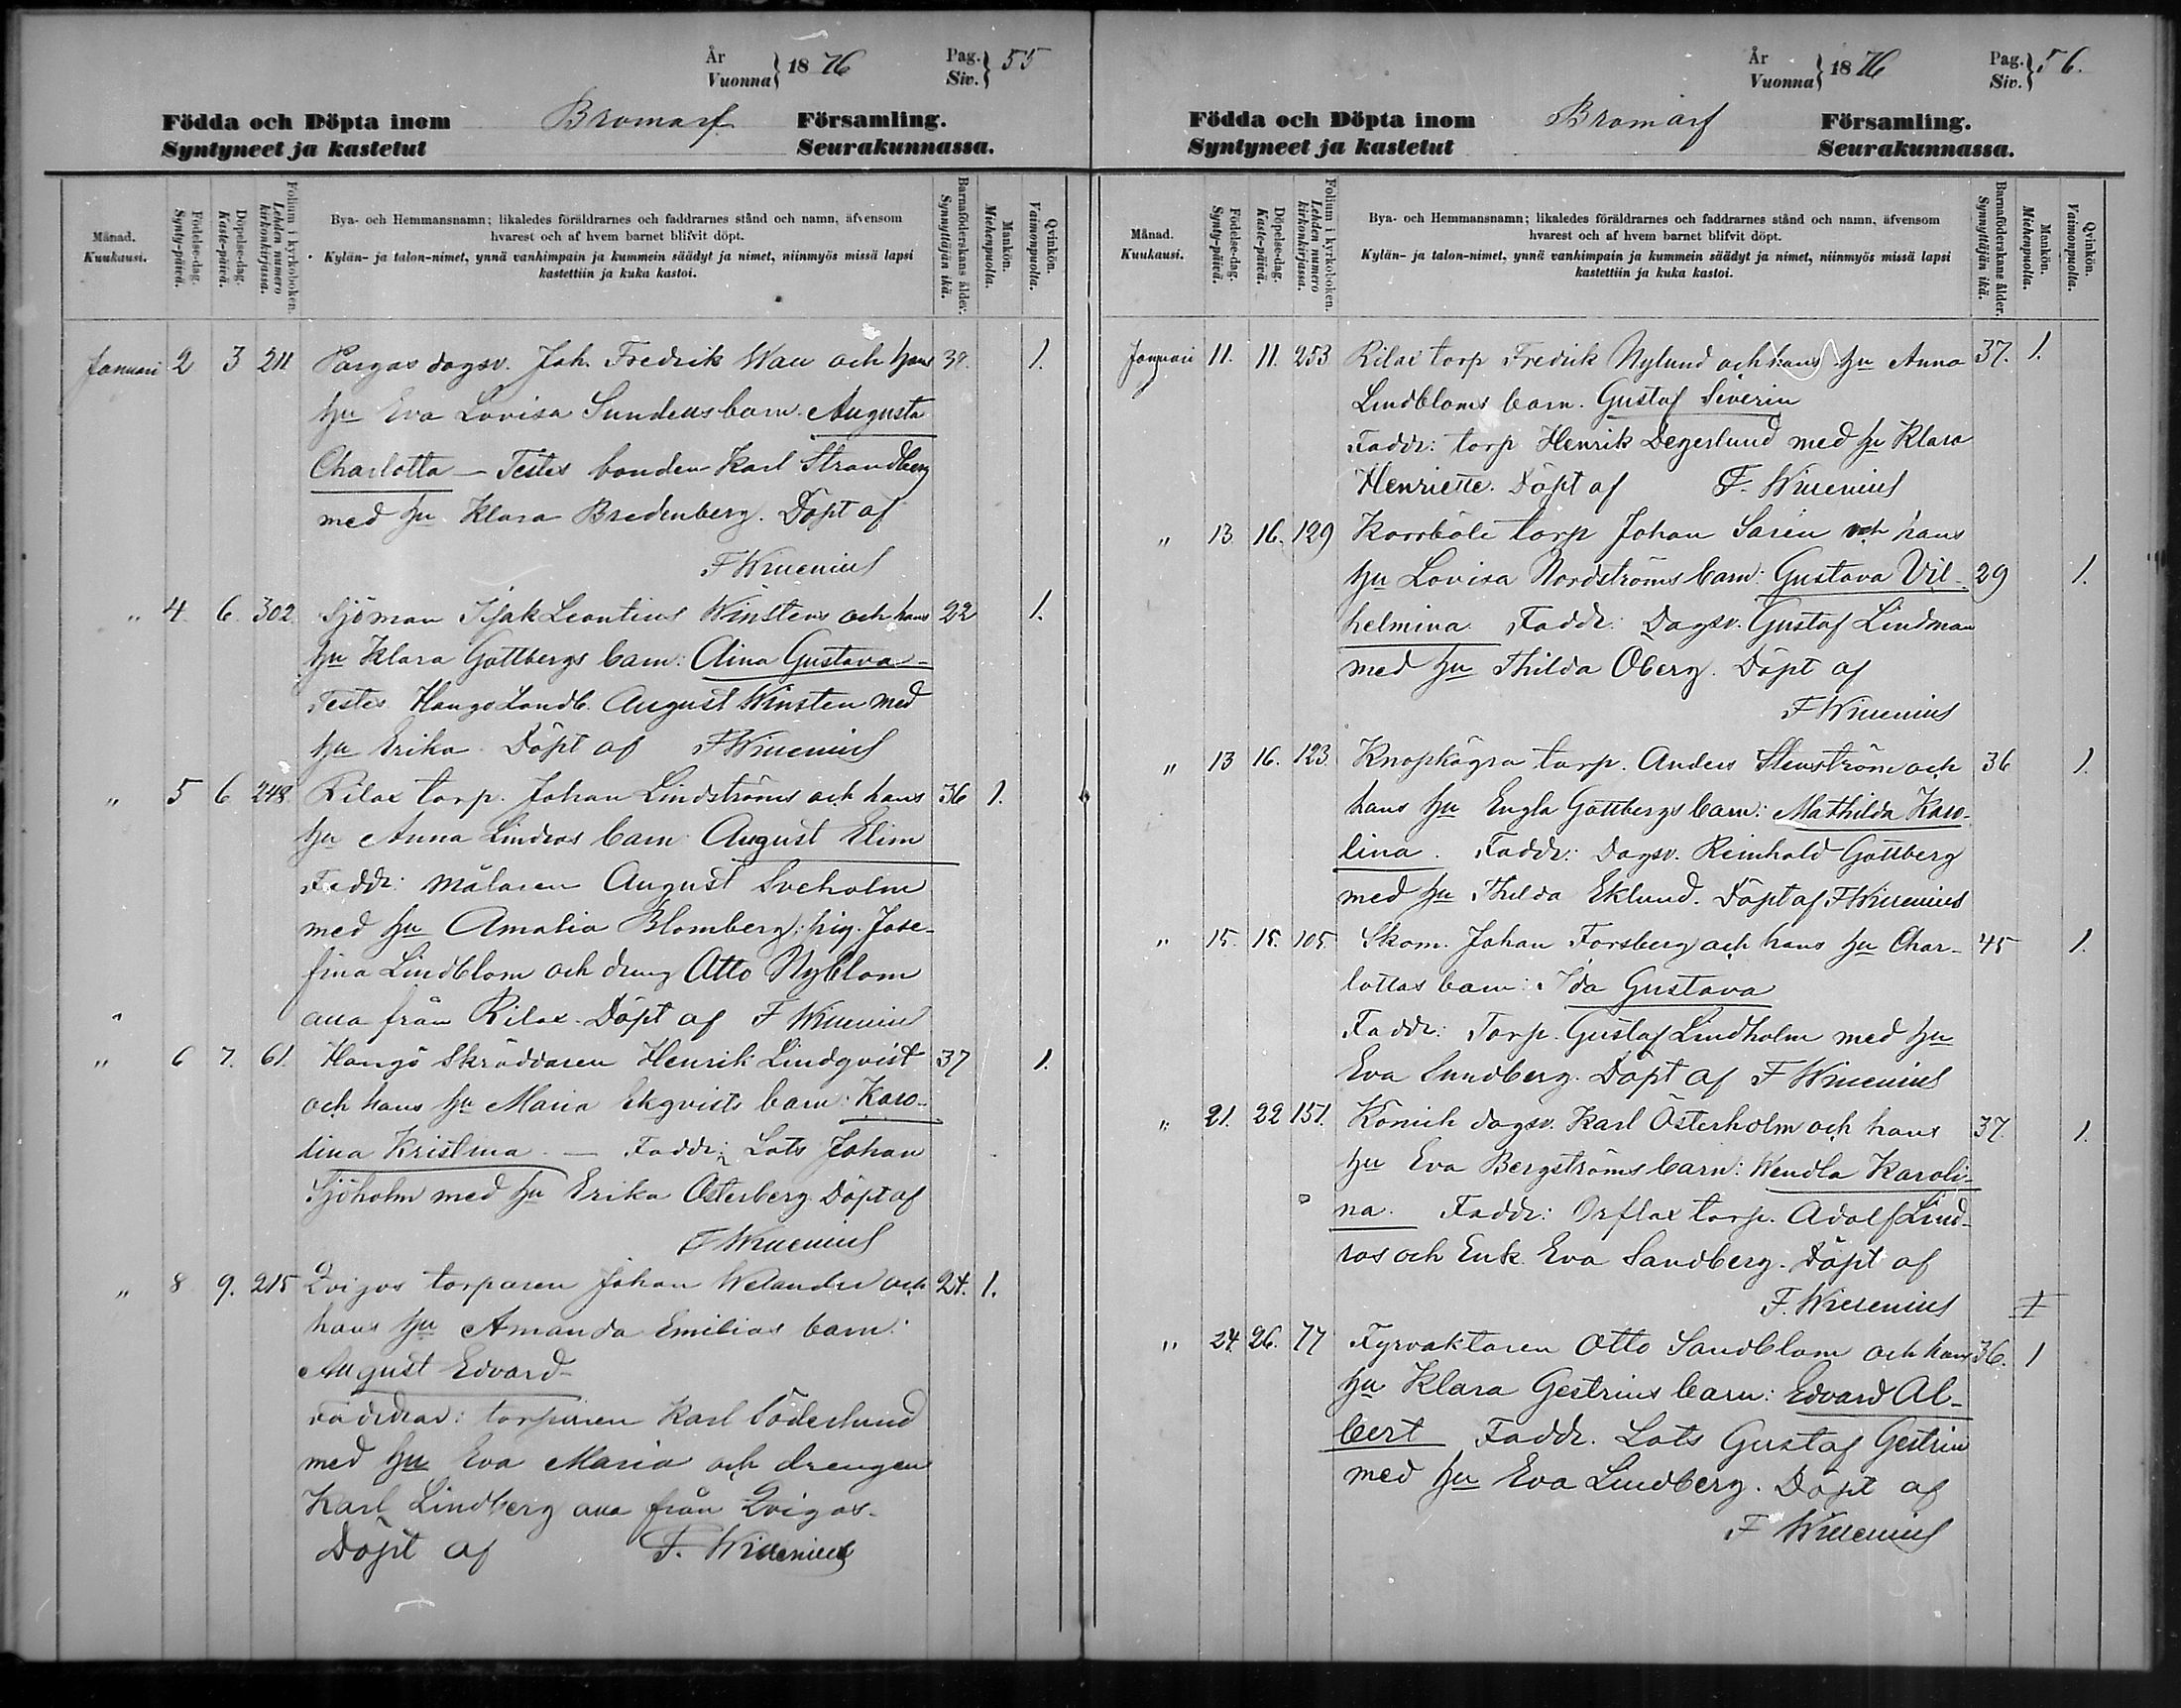 År
Vuonna } 1876
Pag.
Siv. } 55
Födda och Döpta inom Bromarf Församling.
Syntyneet ja kastetut Seurakunnassa.
Månad.
Kuukausi.
Födelse-dag.
Synty-päivä.
Döpelse-dag.
Kaste-päivä.
Folium i kyrkoboken.
Lehden numero kirkonkirjassa.
Bya- och Hemmansnamn; likaledes föräldrarnes och faddrarnes stånd och namn, äfvensom
hvarest och af hvem barnet blifvit döpt.
Kylän- ja talon-nimet, ynnä vanhimpain ja kummein säädyt ja nimet, niinmyös missä lapsi
kastettiin ja kuka kastoi.
Barnaföderskans ålder.
Synnyttäjän ikä.
Mankön.
Miehenpuolta.
Qvinkön.
Vaimonpuolta.
Januari 2 3 211 Pargas dagsv. Joh. Fredrik Wau och hans 38. 1.
hu Eva Lovisa Sundens barn. Augusta
Charlotta — Testes bonden Karl Strandberg
med hu Klara Bredenberg. Döpt af
F Wrenius
" 4. 6. 302. Sjöman Isak Leontius Winstens och hans 22 1.
hu Klara Gottbergs barn: Aina Gustava
Testes Hangö Landb. August Winsten med
hu Erika. Döpt af F Wrenius
" 5 6 248. Rilax torp. Johan Lindströms och hans 36 1.
hu Anna Lindros barn August Elim
Faddr: målaren August Soeholm
med hu Amalia Blomberg; pig. Jose-
fina Lindblom och dreng Otto Nyblom
alla från Rilax. Döpt af F Wrenius
" 6 7. 61. Hangö Skräddaren Henrik Lindqvist 37 1.
och hans hu Maria Ekqvists barn: Karo-
lina Kristina. — Faddr: Lots Johan
Sjöholm med hu Erika Österberg Döpt af
F Wrenius
" 8 9. 215 Qvigos torparen Johan Welander och 24. 1.
hans hu Amanda Emilias barn:
August Edvard
Faddrar: torparen Karl Söderlund
med hu Eva Maria och drengen
Karl Lindberg alla från Qvigos.
Döpt af F. Wrenius
År
Vuonna } 1876
Pag.
Siv. } 56.
Födda och Döpta inom Bromarf Församling.
Syntyneet ja kastetut Seurakunnassa.
Månad.
Kuukausi.
Födelse-dag.
Synty-päivä.
Döpelse-dag.
Kaste-päivä.
Folium i kyrkoboken.
Lehden numero kirkonkirjassa.
Bya- och Hemmansnamn; likaledes föräldrarnes och faddrarnes stånd och namn, äfvensom
hvarest och af hvem barnet blifvit döpt.
Kylän- ja talon-nimet, ynnä vanhimpain ja kummein säädyt ja nimet, niinmyös missä lapsi
kastettiin ja kuka kastoi.
Barnaföderskans ålder.
Synnyttäjän ikä.
Mankön.
Miehenpuolta.
Qvinkön.
Vaimonpuolta.
Januari 11. 11. 253 Rilax torp Fredrik Nylund och hans hu Anna 37. 1.
Lindbloms barn. Gustaf Siverin
Faddr: torp Henrik Degerlund med hu Klara
Henriette. Döpt af F. Wrenius
" 13 16. 129 Korsböle torp Johan Sarén och hans
hu Lovisa Nordströms barn: Gustava Vil- 29 1.
helmina Faddr: Dagsv. Gustaf Lindman
med hu Thilda Öberg. Döpt af
F Wrenius
" 13 16. 123. Knopkägra torp. Anders Stenström och 36 1.
hans hu Engla Gottbergs barn: Mathilda Karo-
lina. Faddr: Dagsv. Reinhold Gottberg
med hu Thilda Eklund. Döpt af F Wrenius
" 15. 15. 105. Skom. Johan Forsberg och hans hu Char- 45 1.
lottas barn: Ida Gustava
Faddr: Torp. Gustaf Lindholm med hu
Eva Sundberg. Döpt af F Wrenius
" 21. 22 151. Dagsv. Karl Österholm och hans 37. 1.
hu Eva Bergströms barn: Wendla Karoli-
na. Faddr: Orflax torp. Adolf Lind-
ros och Enk. Eva Sandberg. Döpt af
F. Wrenius
" 24 26. 77 Fyrvaktaren Otto Sandblom och hans 36. 1
hu Klara Gestrins barn: Edvard Al-
bert Faddr. Lots Gustaf Gestrin
med hu Eva Lindberg. Döpt af
F Wrenius